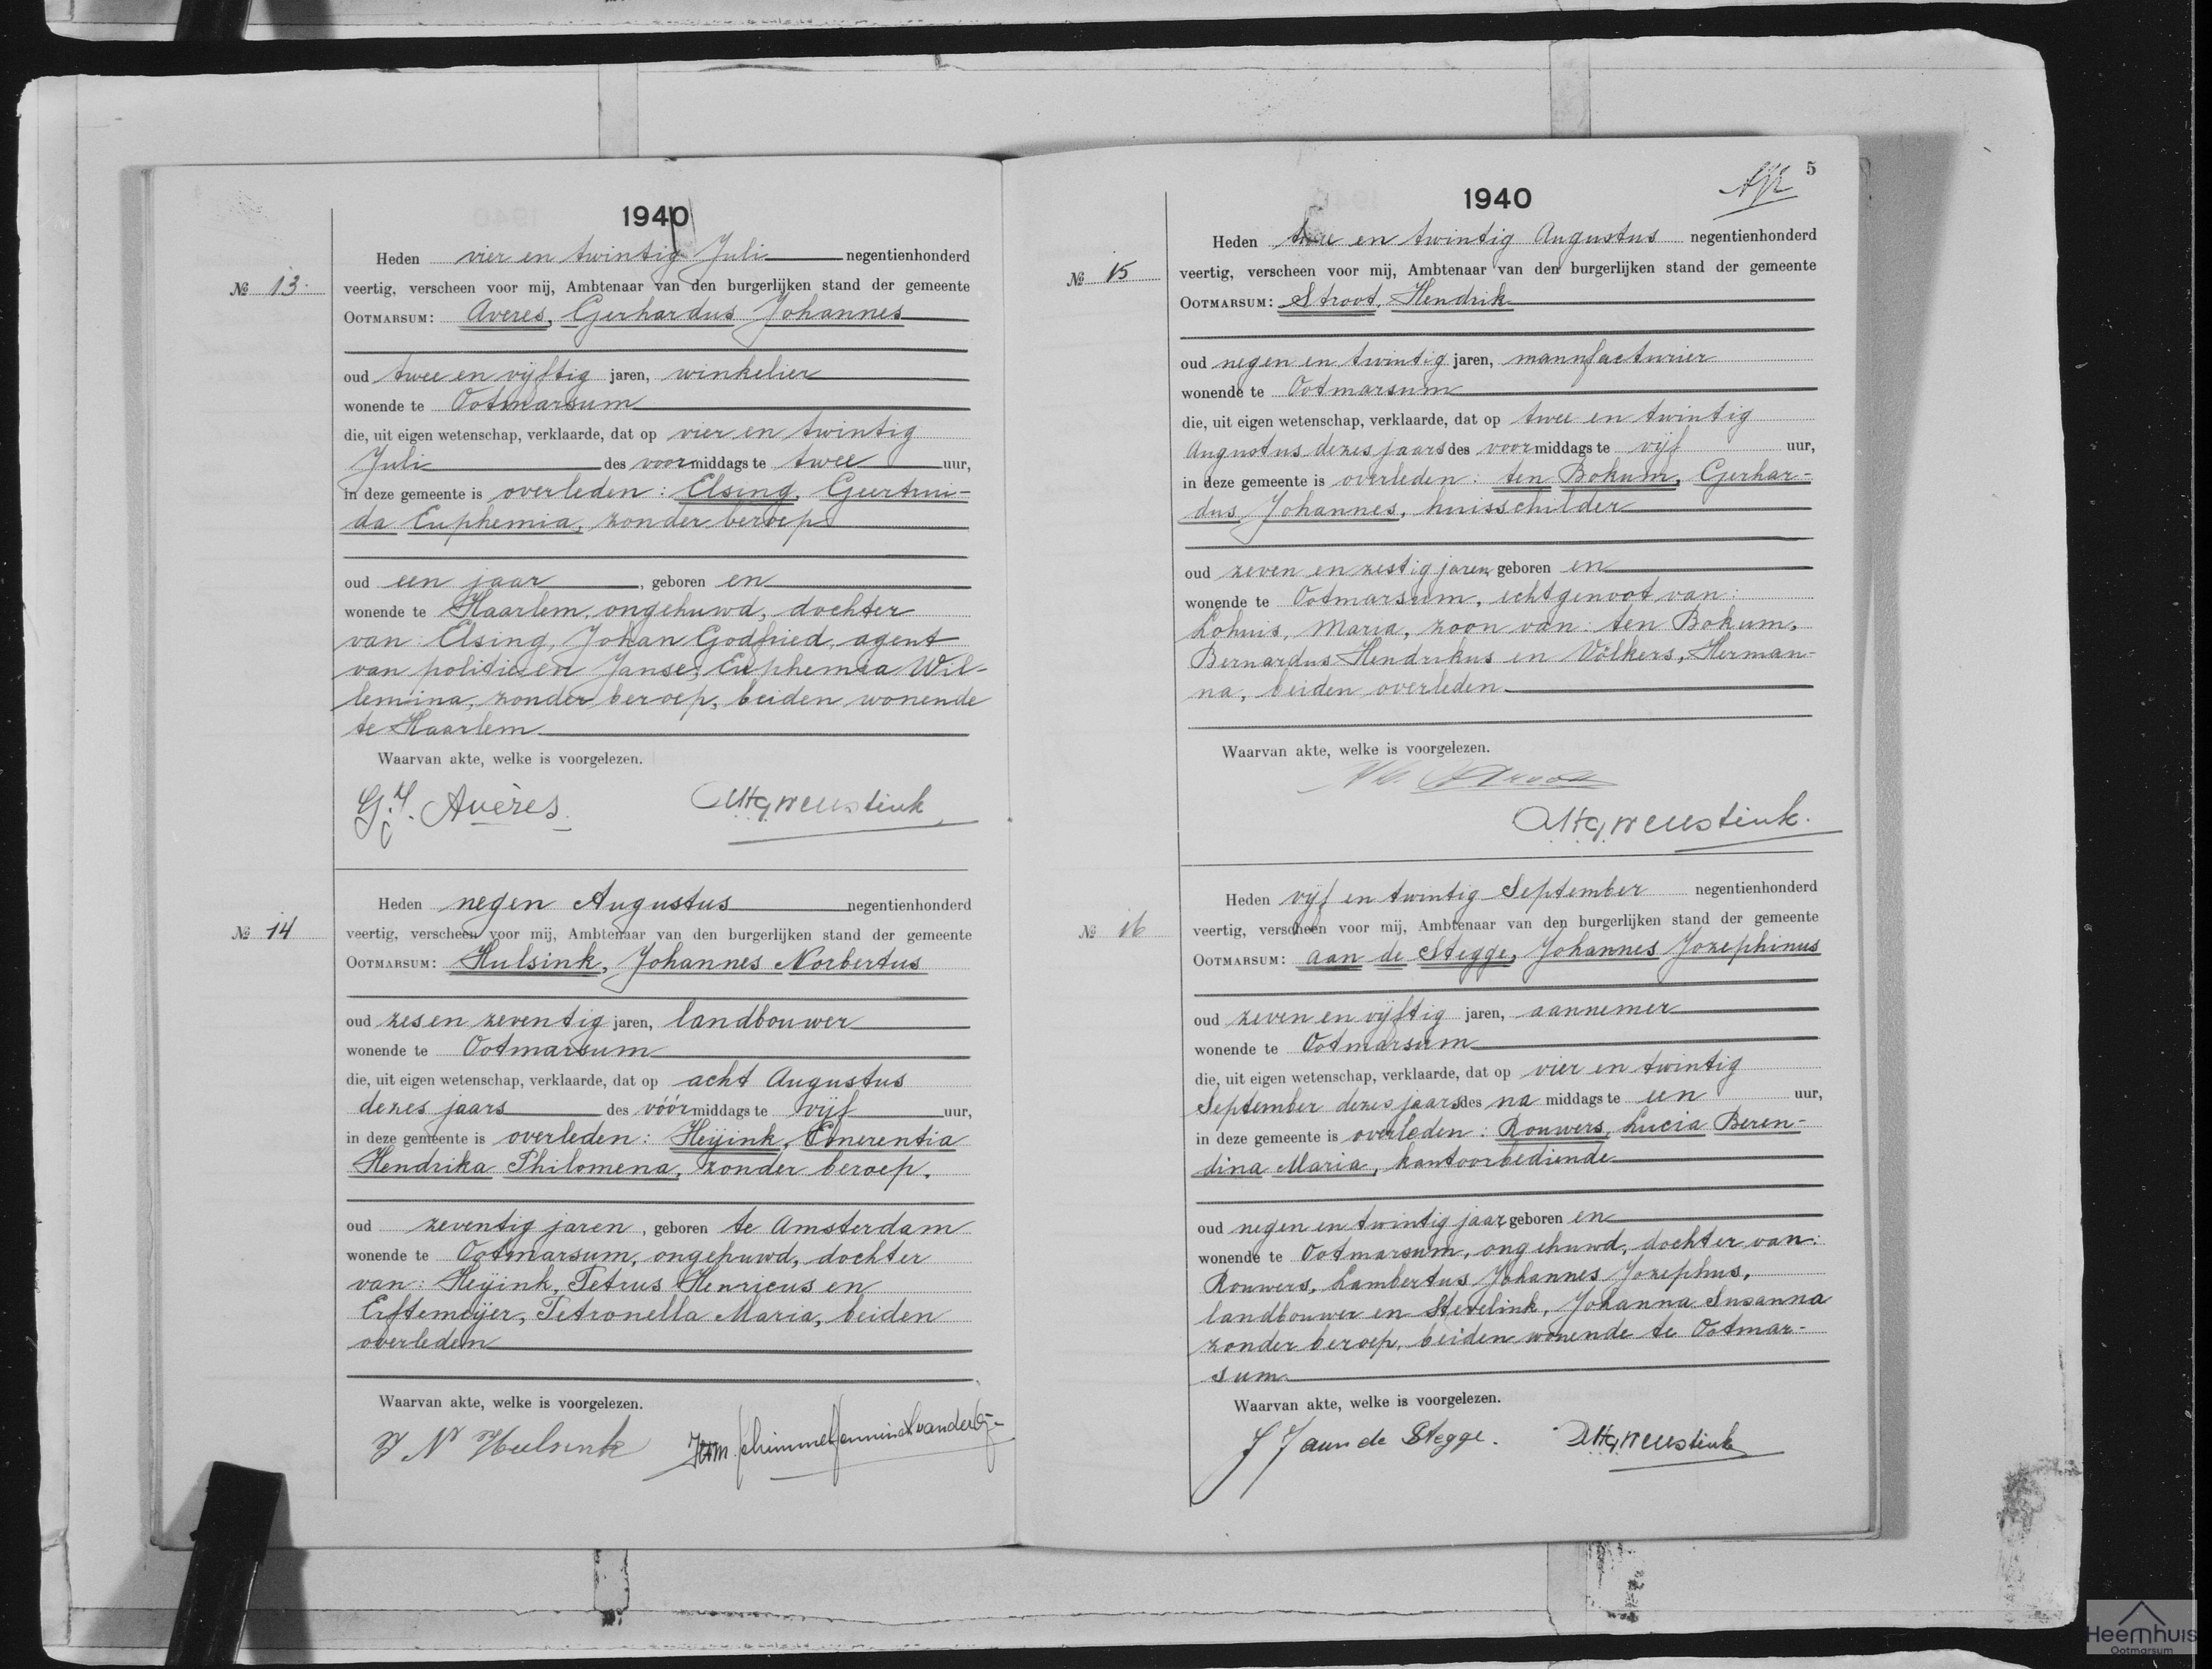 1940
Heden vier en twintig Juli negentienhonderd
№ 13. veertig, verscheen voor mij, Ambtenaar van den burgerlijken stand der gemeente
OOTMARSUM: Averes, Gerhardus Johannes
oud twee en vijftig jaren, winkelier
wonende te Ootmarsum
die, uit eigen wetenschap, verklaarde, dat op vier en twintig
Juli des voormiddags te twee uur,
in deze gemeente is overleden: Elsing, Geertrui-
da Euphemia, zonder beroep
oud een jaar, geboren en
wonende te Haarlem, ongehuwd, dochter
van: Elsing, Johan Godfried, agent
van politie en Janse, Euphemia Wil-
lemina, zonder beroep, beiden wonende
te Haarlem
Waarvan akte, welke is voorgelezen.
G. J. Avères.
Heden negen Augustus negentienhonderd
№ 14 veertig, verscheen voor mij, Ambtenaar van den burgerlijken stand der gemeente
OOTMARSUM: Hulsink, Johannes Norbertus
oud zes en zeventig jaren, landbouwer
wonende te Ootmarsum
die, uit eigen wetenschap, verklaarde, dat op acht Augustus
dezes jaars des vóórmiddags te vijf uur,
in deze gemeente is overleden: Heijink, Emerentia
Hendrika Philomena, zonder beroep.
oud zeventig jaren, geboren te Amsterdam
wonende te Ootmarsum, ongehuwd, dochter
van: Heijink, Petrus Henricus en
Erftemeijer, Petronella Maria, beiden
overleden
Waarvan akte, welke is voorgelezen.
J N Hulsink
5
1940
Heden twee en twintig Augustus negentienhonderd
№ 15 veertig, verscheen voor mij, Ambtenaar van den burgerlijken stand der gemeente
OOTMARSUM: Stroot, Hendrik
oud negen en twintig jaren, manufacturier
wonende te Ootmarsum
die, uit eigen wetenschap, verklaarde, dat op twee en twintig
Augustus dezes jaars des voormiddags te vijf uur,
in deze gemeente is overleden: ten Bokum, Gerhar-
dus Johannes, huisschilder
oud zeven en zestig jaren, geboren en
wonende te Ootmarsum, echtgenoot van:
Lohuis, Maria, zoon van: ten Bokum,
Bernardus Hendrikus en Völkers, Herman-
na, beiden overleden
Waarvan akte, welke is voorgelezen.
Heden vijf en twintig September negentienhonderd
№ 16 veertig, verscheen voor mij, Ambtenaar van den burgerlijken stand der gemeente
OOTMARSUM: aan de Stegge, Johannes Jozephinus
oud zeven en vijftig jaren, aannemer
wonende te Ootmarsum
die, uit eigen wetenschap, verklaarde, dat op vier en twintig
September dezes jaars des na middags te een uur,
in deze gemeente is overleden: Rouwers, Lucia Beren-
dina Maria, kantoorbediende
oud negen en twintig jaar geboren en
wonende te Ootmarsum, ongehuwd, dochter van:
Rouwers, Lambertus Johannes Jozephus,
landbouwer en Stevelink, Johanna Susanna
zonder beroep, beiden wonende te Ootmar-
sum.
Waarvan akte, welke is voorgelezen.
J J aan de Stegge.
Heemhuis
Ootmarsum